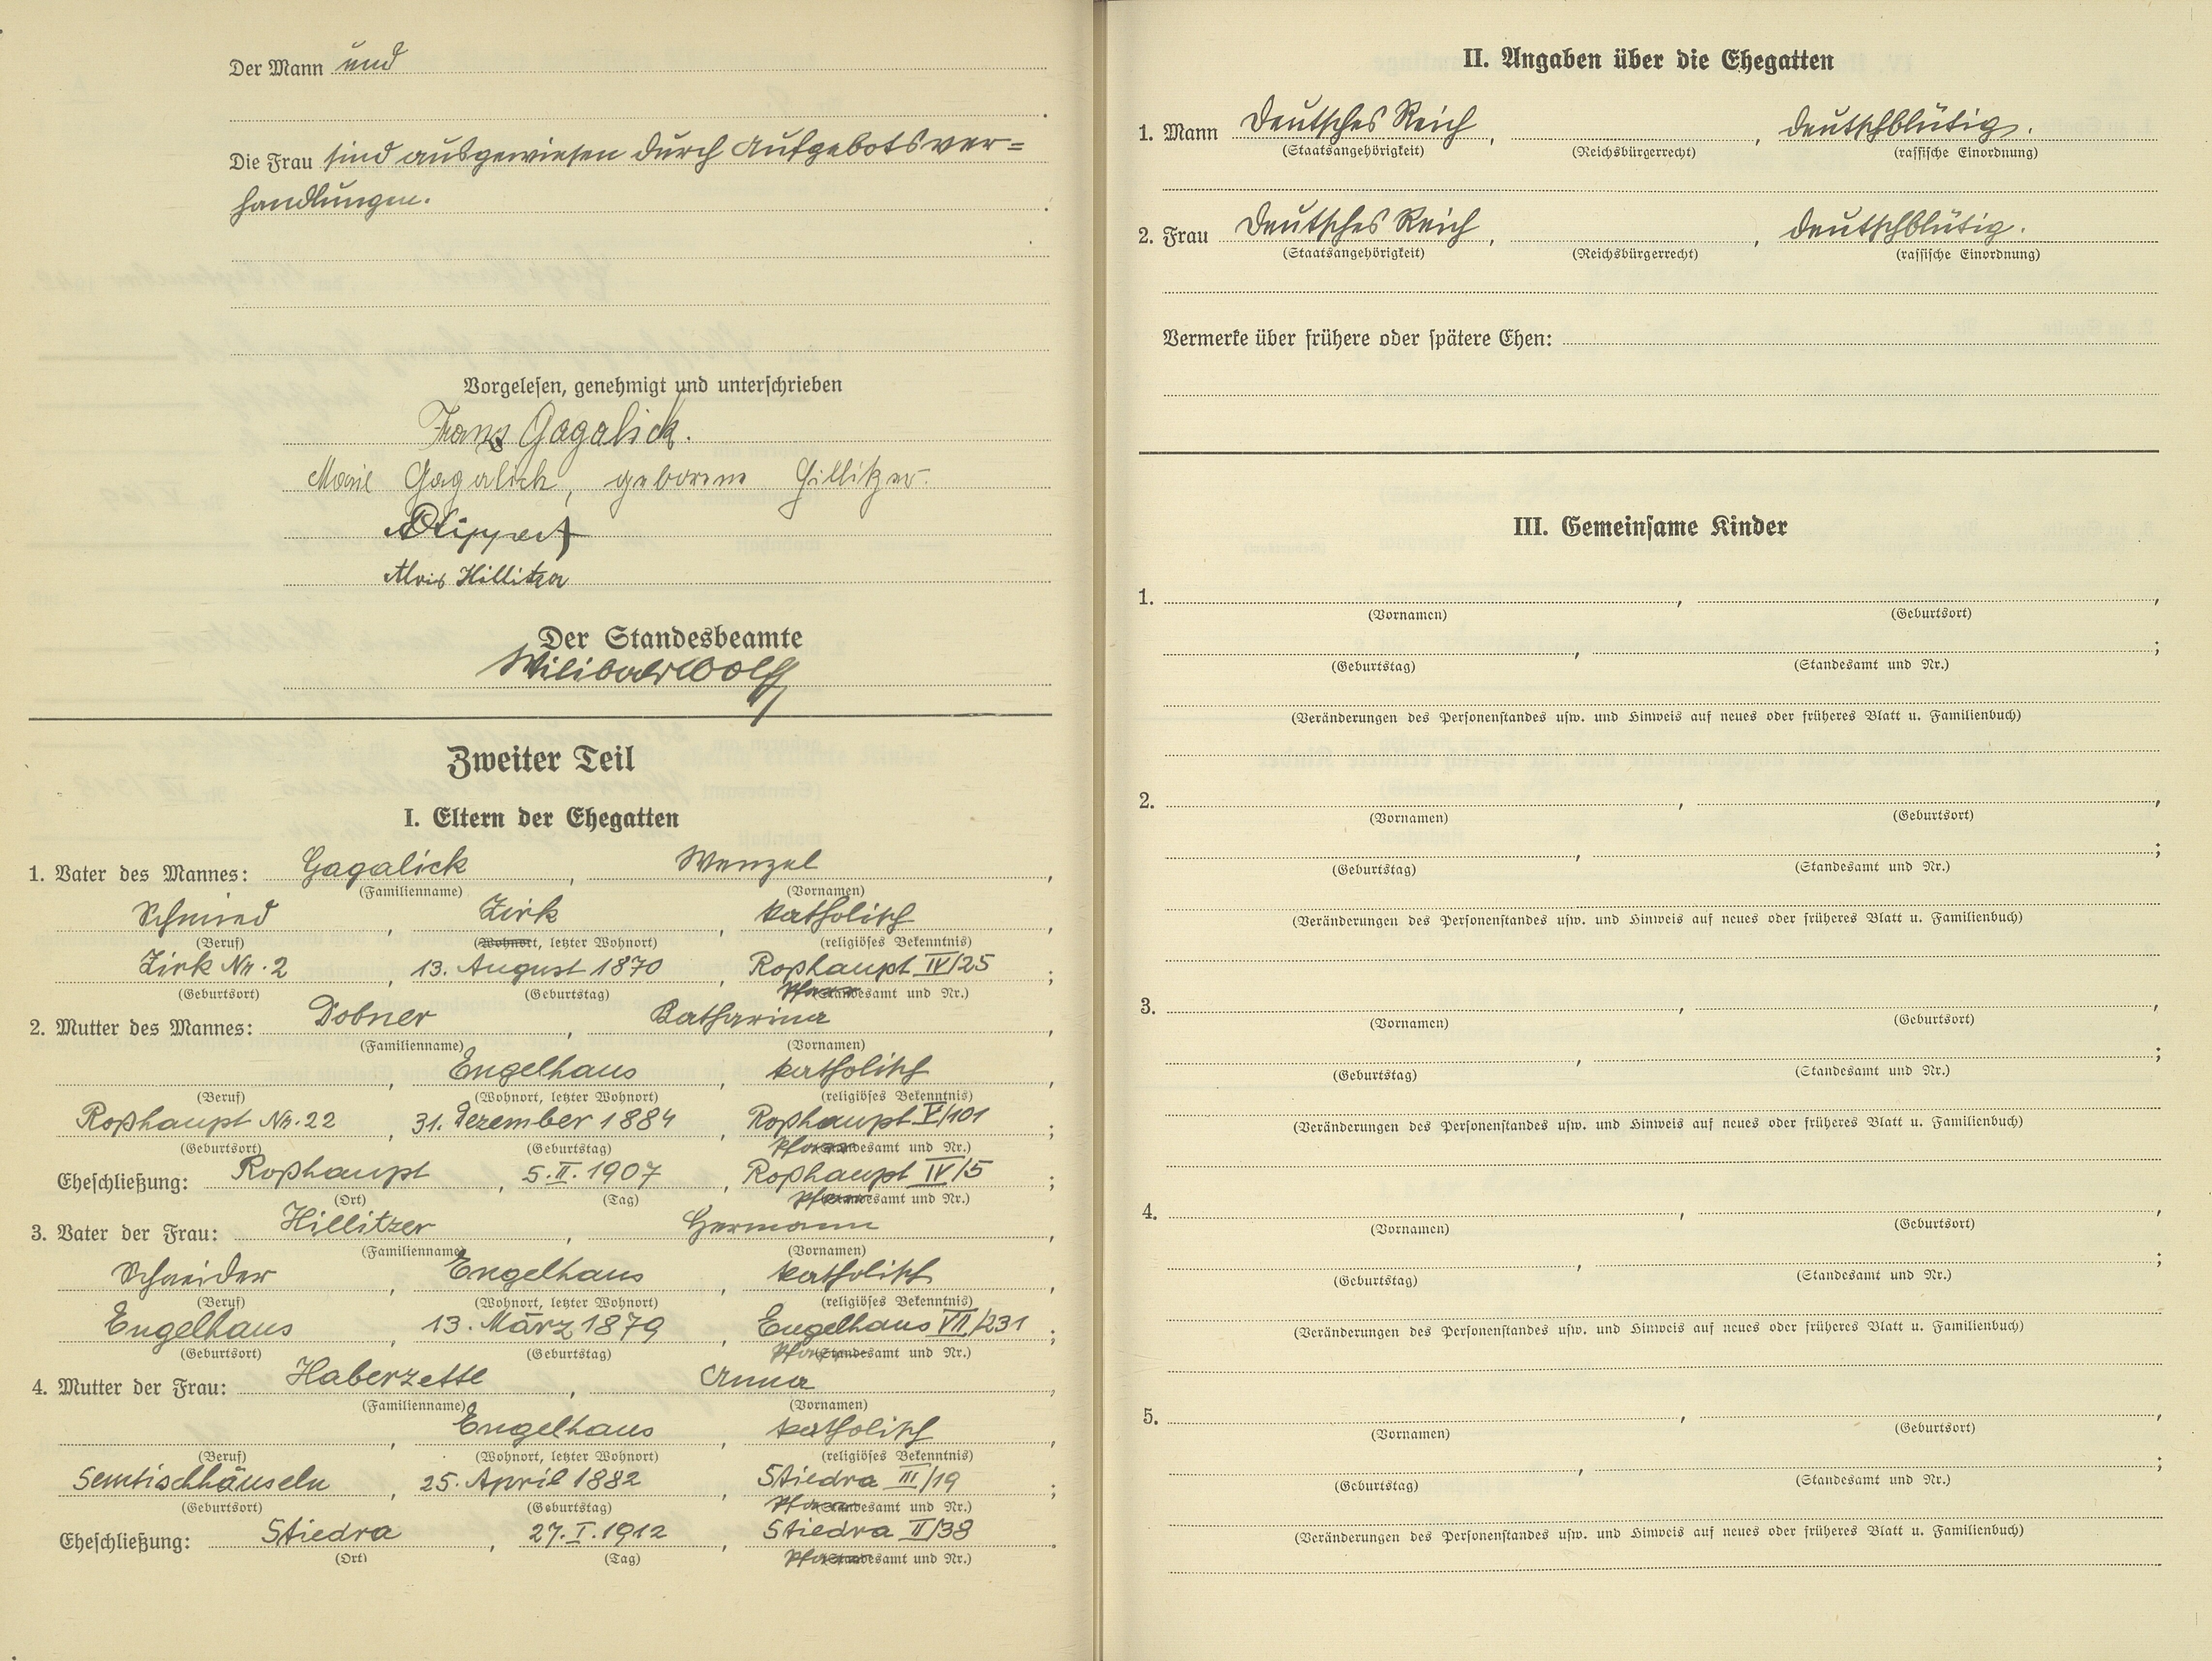 Der Mann und
Die Frau sind ausgewiesen durch Aufgebotsver=
handlungen.
Vorgelesen, genehmigt und unterschrieben
Franz Gagalick.
Marie Gagalick, geborene Hillitzer.
Lippert
Alois Hillitzer
Der Standesbeamte
Wilibald Wolf
Zweiter Teil
I. Eltern der Ehegatten
1. Vater des Mannes: Gagalick, Wenzel,
(Familienname) (Vornamen)
Schmied, Zirk, katholisch,
(Beruf) (Wohnort, letzter Wohnort) (religiöses Bekenntnis)
Zirk Nr. 2, 13. August 1870, Roßhaupt IV/25;
(Geburtsort) (Geburtstag) Pfarr (Standesamt und Nr.)
2. Mutter des Mannes: Dobner, Katharina,
(Familienname) (Vornamen)
, Engelhaus, katholisch,
(Beruf) (Wohnort, letzter Wohnort) (religiöses Bekenntnis)
Roßhaupt Nr. 22, 31. Dezember 1884, Roßhaupt V/101;
(Geburtsort) (Geburtstag) Pfarr (Standesamt und Nr.)
Eheschließung: Roßhaupt, 5. II. 1907, Roßhaupt IV/5;
(Ort) (Tag) Pfarr (Standesamt und Nr.)
3. Vater der Frau: Hillitzer, Hermann,
(Familienname) (Vornamen)
Schneider, Engelhaus, katholisch,
(Beruf) (Wohnort, letzter Wohnort) (religiöses Bekenntnis)
Engelhaus, 13. März 1879, Engelhaus VII/231;
(Geburtsort) (Geburtstag) Pfarr (Standesamt und Nr.)
4. Mutter der Frau: Haberzettl, Anna,
(Familienname) (Vornamen)
, Engelhaus, katholisch,
(Beruf) (Wohnort, letzter Wohnort) (religiöses Bekenntnis)
Semtischhäuseln, 25. April 1882, Stiedra III/19;
(Geburtsort) (Geburtstag) Pfarr (Standesamt und Nr.)
Eheschließung: Stiedra, 27. I. 1912, Stiedra II/38.
(Ort) (Tag) Pfarr (Standesamt und Nr.)
II. Angaben über die Ehegatten
1. Mann Deutsches Reich, , deutschblütig.
(Staatsangehörigkeit) (Reichsbürgerrecht) (rassische Einordnung)
2. Frau Deutsches Reich, , deutschblütig.
(Staatsangehörigkeit) (Reichsbürgerrecht) (rassische Einordnung)
Vermerke über frühere oder spätere Ehen:
III. Gemeinsame Kinder
1. , ,
(Vornamen) (Geburtsort)
, ;
(Geburtstag) (Standesamt und Nr.)
(Veränderungen des Personenstandes usw. und Hinweis auf neues oder früheres Blatt u. Familienbuch)
2. , ,
(Vornamen) (Geburtsort)
, ;
(Geburtstag) (Standesamt und Nr.)
(Veränderungen des Personenstandes usw. und Hinweis auf neues oder früheres Blatt u. Familienbuch)
3. , ,
(Vornamen) (Geburtsort)
, ;
(Geburtstag) (Standesamt und Nr.)
(Veränderungen des Personenstandes usw. und Hinweis auf neues oder früheres Blatt u. Familienbuch)
4. , ,
(Vornamen) (Geburtsort)
, ;
(Geburtstag) (Standesamt und Nr.)
(Veränderungen des Personenstandes usw. und Hinweis auf neues oder früheres Blatt u. Familienbuch)
5. , ,
(Vornamen) (Geburtsort)
, ;
(Geburtstag) (Standesamt und Nr.)
(Veränderungen des Personenstandes usw. und Hinweis auf neues oder früheres Blatt u. Familienbuch)